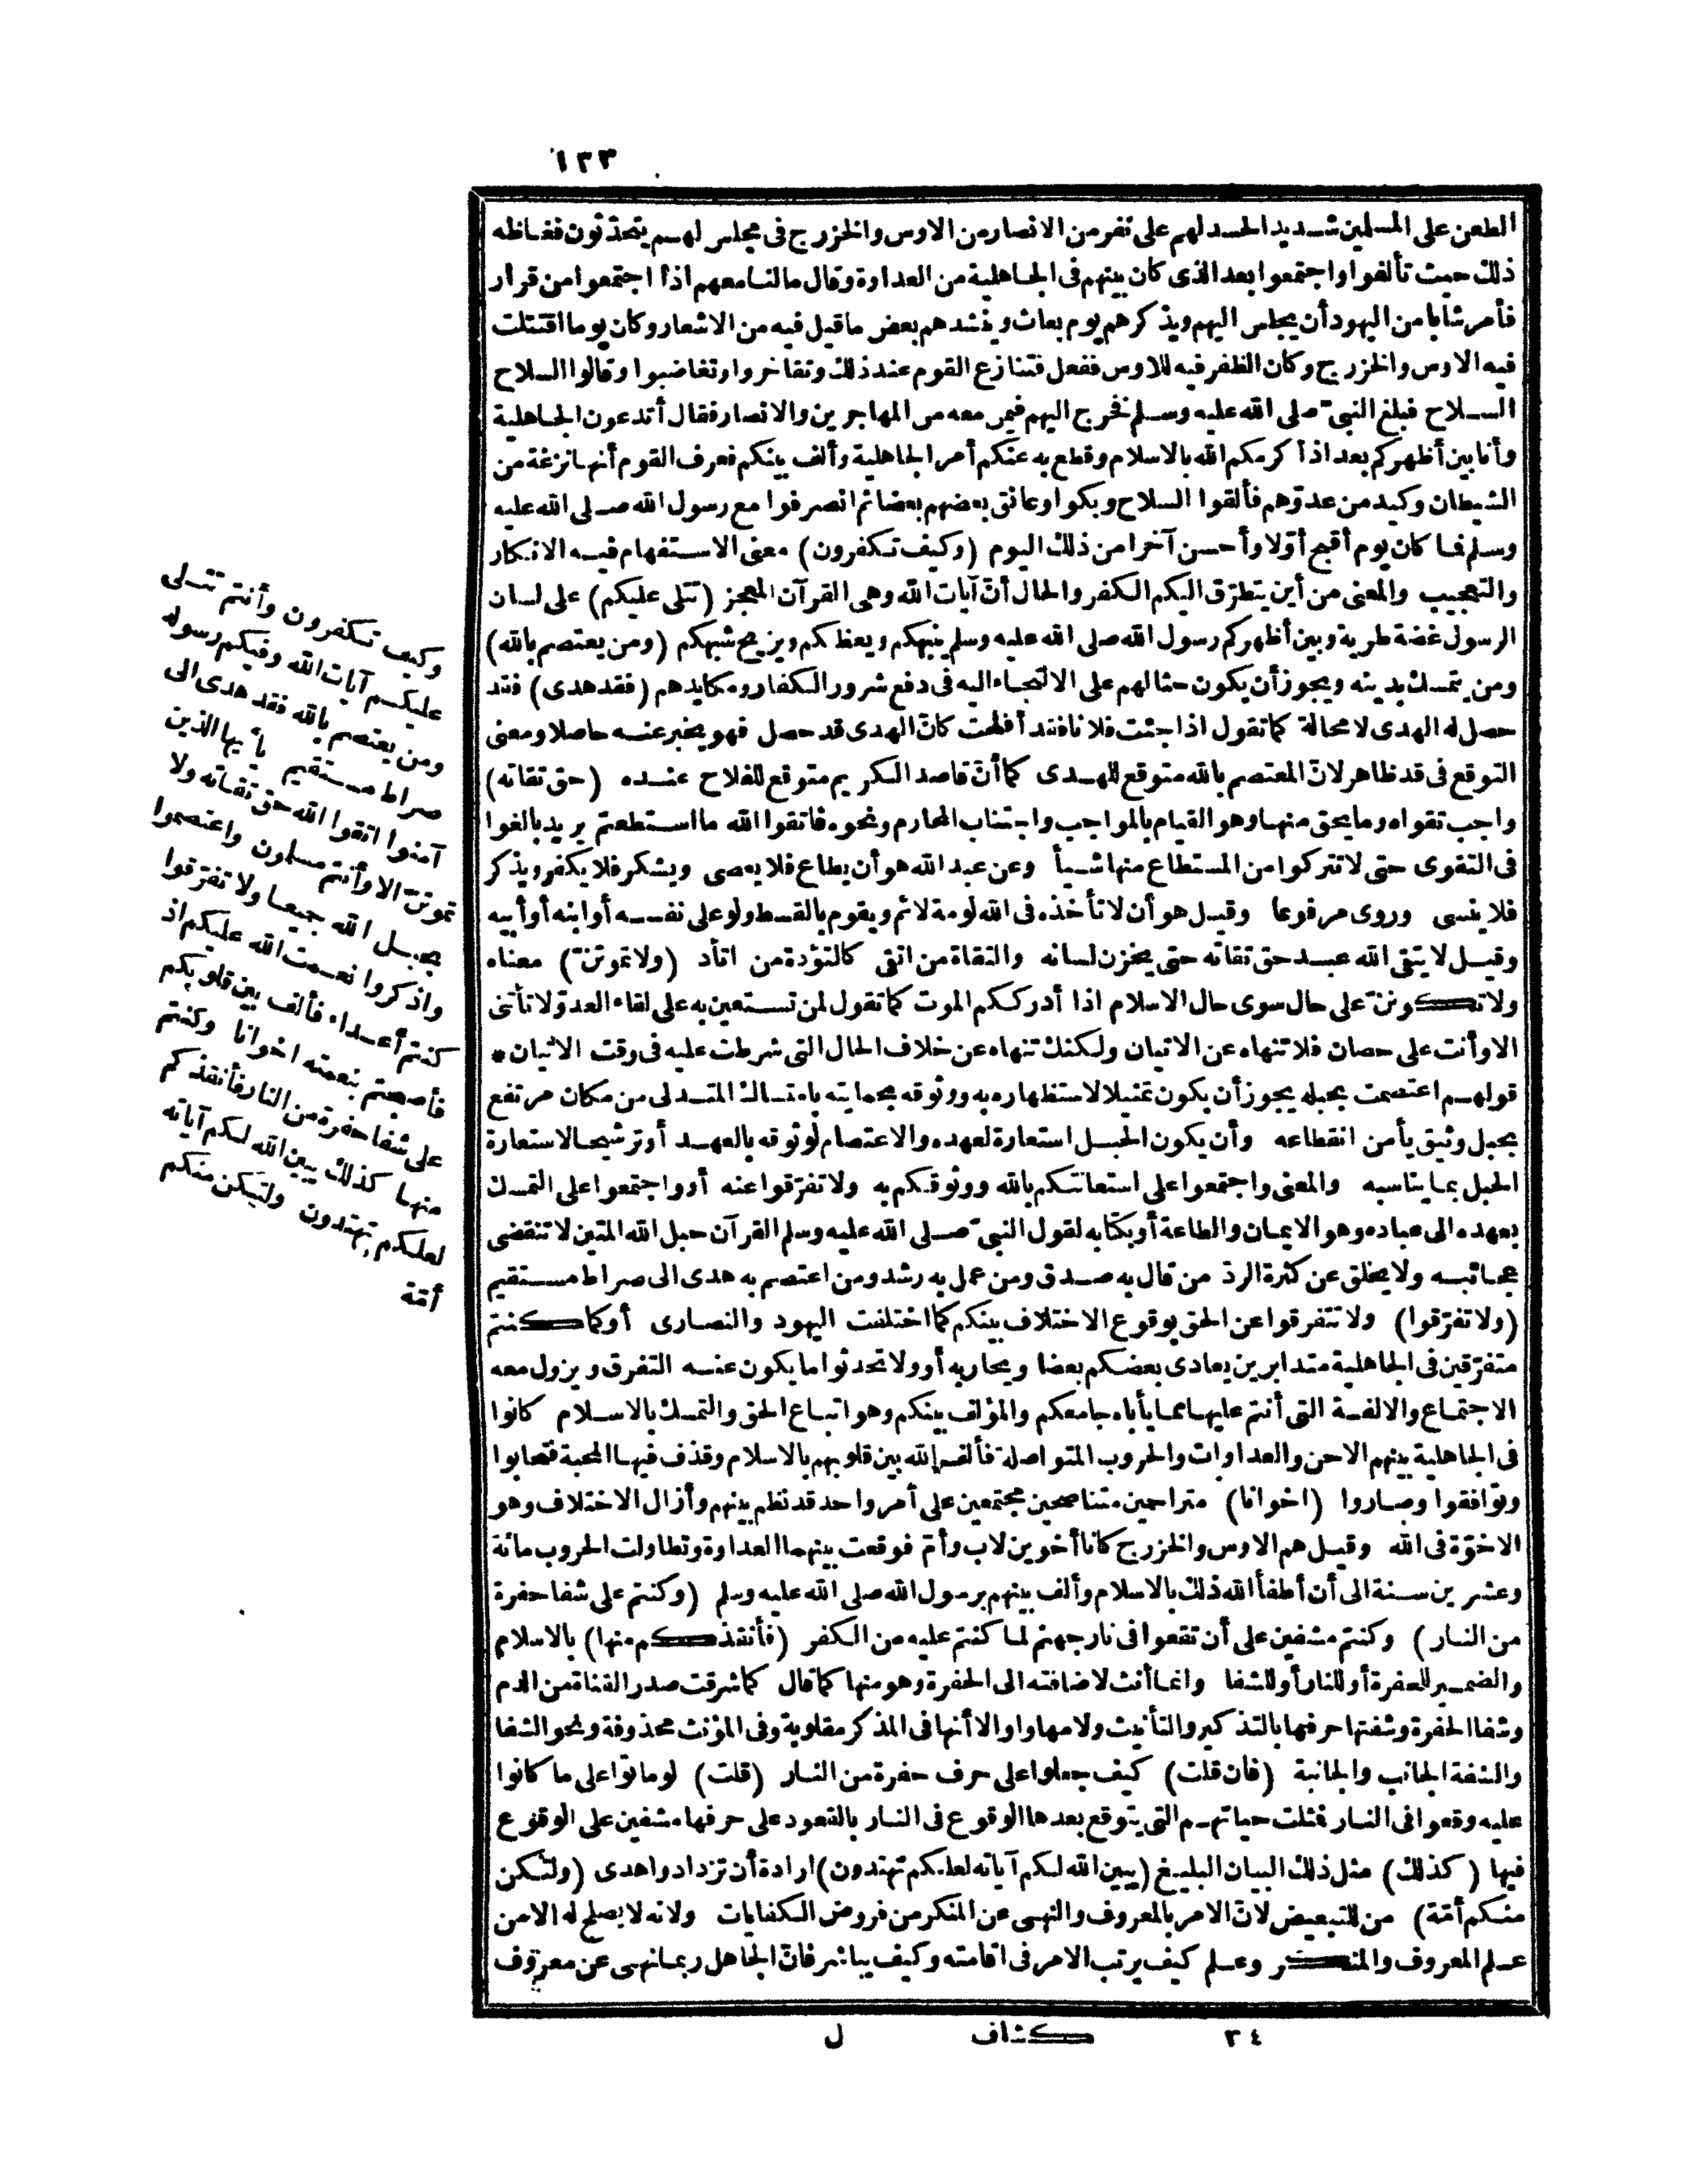 ١٣٣
الطعن على المسلمين شديد الحسد لهم على نفر من الانصار من الاوس والخزرج فى مجلس لهم يتحدّثون فغاظه
ذلك حيث تألفوا واجتمعوا بعد الذى كان بينهم فى الجاهلية من العداوة وقال مالنا معهم اذا اجتمعوا من قرار
فأمر شابا من اليهود أن يجلس اليهم ويذكرهم يوم بعاث وينشدهم بعض ما قيل فيه من الاشعار وكان يوما اقتتلت
فيه الاوس والخزرج وكان الظفر فيه للاوس ففعل فتنازع القوم عند ذلك وتفاخروا وتغاضبوا وقالوا السلاح
السلاح فبلغ النبىّ صلى الله عليه وسلم فخرج اليهم فيمن معه من المهاجرين والانصار فقال أتدعون الجاهلية
وأنا بين أظهركم بعد اذ أكرمكم الله بالاسلام وقطع به عنكم أمر الجاهلية وألف بينكم فعرف القوم أنها نزغة من
الشيطان وكيد من عدوّهم فألقوا السلاح وبكوا وعانق بعضهم بعضا ثم انصرفوا مع رسول الله صلى الله عليه
وسلم فما كان يوم أقبح أوّلا وأحسن آخرا من ذلك اليوم (وكيف تكفرون) معنى الاستفهام فيه الانكار
والتعجيب والمعنى من أين يتطرّق اليكم الكفر والحال أنّ آيات الله وهى القرآن المعجز (تتلى عليكم) على لسان
الرسول غضة طرية وبين أظهركم رسول الله صلى الله عليه وسلم ينبهكم ويعظكم ويزيح شبهكم (ومن يعتصم بالله)
ومن يتمسك بدينه ويجوز أن يكون حثا لهم على الالتجاء اليه فى دفع شرور الكفار ومكايدهم (فقد هدى) فقد
حصل له الهدى لا محالة كما تقول اذا جئت فلانا فقد أفلحت كانّ الهدى قد حصل فهو يخبر عنه حاصلا ومعنى
التوقع فى قد ظاهر لانّ المعتصم بالله متوقع للهدى كما أنّ قاصد الكريم متوقع للفلاح عنده (حق تقاته)
واجب تقواه وما يحق منها وهو القيام بالمواجب واجتناب المحارم ونحوه فاتقوا الله ما استطعتم يريد بالغوا
فى التقوى حتى لا تتركوا من المستطاع منها شيأ وعن عبد الله هو أن يطاع فلا يعصى ويشكر فلا يكفر ويذكر
فلا ينسى وروى مرفوعا وقيل هو أن لا تأخذه فى الله لومة لائم ويقوم بالقسط ولو على نفسه أو ابنه أو أبيه
وقيل لا يتقى الله عبد حق تقاته حتى يخزن لسانه والتقاة من اتقى كالتؤدة من اتأد (ولا تموتنّ) معناه
ولا تكوننّ على حال سوى حال الاسلام اذا أدرككم الموت كما تقول لمن تستعين به على لقاء العدوّ لا تأتنى
الا وأنت على حصان فلا تنهاه عن الاتيان ولكنك تنهاه عن خلاف الحال التى شرطت عليه فى وقت الاتيان *
قولهم اعتصمت بحبله يجوز أن يكون تمثيلا لاستظهاره به ووثوقه بحمايته بامتساك المتدلى من مكان مرتفع
بحبل وثيق يأمن انقطاعه وأن يكون الحبل استعارة لعهده والاعتصام لوثوقه بالعهد أو ترشيحا لاستعارة
الحبل بما يناسبه والمعنى واجتمعوا على استعانتكم بالله ووثوقكم به ولا تفرّقوا عنه أو واجتمعوا على التمسك
بعهده الى عباده وهو الايمان والطاعة أو بكتابه لقول النبىّ صلى الله عليه وسلم القرآن حبل الله المتين لا تنقضى
عجائبه ولا يخلق عن كثرة الردّ من قال به صدق ومن عمل به رشد ومن اعتصم به هدى الى صراط مستقيم
(ولا تفرّقوا) ولا تتفرقوا عن الحق بوقوع الاختلاف بينكم كما اختلفت اليهود والنصارى أو كما كنتم
متفرّقين فى الجاهلية متدابرين يعادى بعضكم بعضا ويحاربه أو ولا تحدثوا ما يكون عنه التفرق ويزول معه
الاجتماع والالفة التى أنتم عليها مما يأباه جامعكم والمؤلف بينكم وهو اتباع الحق والتمسك بالاسلام كانوا
فى الجاهلية بينهم الاحن والعداوات والحروب المتواصلة فألف الله بين قلوبهم بالاسلام وقذف فيها المحبة فتحابوا
وتوافقوا وصاروا (اخوانا) متراحمين متناصحين مجتمعين على أمر واحد قد نظم بينهم وأزال الاختلاف وهو
الاخوّة فى الله وقيل هم الاوس والخزرج كانا أخوين لاب وأمّ فوقعت بينهما العداوة وتطاولت الحروب مائة
وعشرين سنة الى أن أطفأ الله ذلك بالاسلام وألف بينهم برسول الله صلى الله عليه وسلم (وكنتم على شفا حفرة
من النار) وكنتم مشفين على أن تقعوا فى نار جهنم لما كنتم عليه من الكفر (فأنقذكم منها) بالاسلام
والضمير للحفرة أو للنار أو للشفا وانما أنث لاضافته الى الحفرة وهو منها كما قال كما شرقت صدر القناة من الدم
وشفا الحفرة وشفتها حرفها بالتذكير والتأنيث ولامها واو الا أنها فى المذكر مقلوبة وفى المؤنث محذوفة ونحو الشفا
والشفة الجانب والجانبة (فان قلت) كيف جعلوا على حرف حفرة من النار (قلت) لو ماتوا على ما كانوا
عليه وقعوا فى النار فمثلت حياتهم التى يتوقع بعدها الوقوع فى النار بالقعود على حرفها مشفين على الوقوع
فيها (كذلك) مثل ذلك البيان البليغ (يبين الله لكم آياته لعلكم تهتدون) ارادة أن تزدادوا هدى (ولتكن
منكم أمّة) من للتبعيض لانّ الامر بالمعروف والنهى عن المنكر من فروض الكفايات ولانه لا يصلح له الا من
علم المعروف والمنكر وعلم كيف يرتب الامر فى اقامته وكيف يباشر فانّ الجاهل ربما نهى عن معروف
وكيف تكفرون وأنتم تتلى
عليكم آيات الله وفيكم رسوله
ومن يعتصم بالله فقد هدى الى
صراط مستقيم يأيها الذين
آمنوا اتقوا الله حق تقاته ولا
تموتنّ الا وأنتم مسلمون واعتصموا
بحبل الله جميعا ولا تفرّقوا
واذكروا نعمت الله عليكم اذ
كنتم أعداء فألف بين قلوبكم
فأصبحتم بنعمته اخوانا وكنتم
على شفا حفرة من النار فأنقذكم
منها كذلك يبين الله لكم آياته
لعلكم تهتدون ولتكن منكم
أمّة
٣٤ كشاف ل